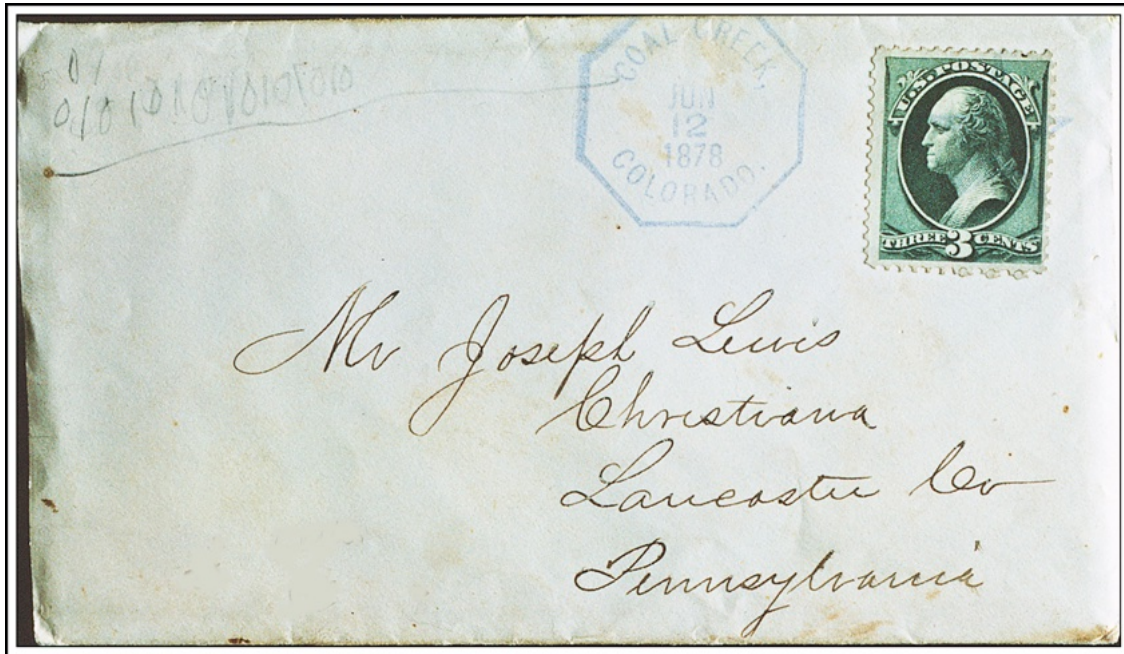 COAL CREEK,
JUN
12
1878
COLORADO.
U.S. POSTAGE
THREE 3 CENTS
Mr Joseph Lewis
Christiana
Lancaster Co
Pennsylvania